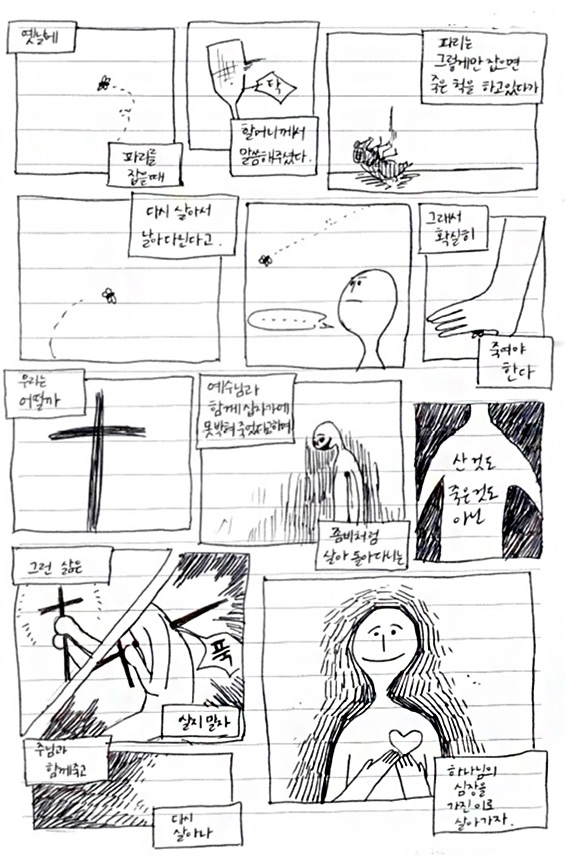 옛날에
파리를
잡을때
탁
할머니께서
말씀해주셨다.
파리는
그렇게만 잡으면
죽은 척을 하고있다가
다시 살아서
날아다닌다고.
그래서
확실히
죽여야
한다
우리는
어떨까
예수님과
함께 십자가에
못박혀 죽었다고하며
좀비처럼
살아 돌아다니는
산 것도
죽은것도
아닌
그런 삶은
푹
살지 말자
주님과
함께 죽고
다시
살아나
하나님의
심장을
가진 이로
살아가자.